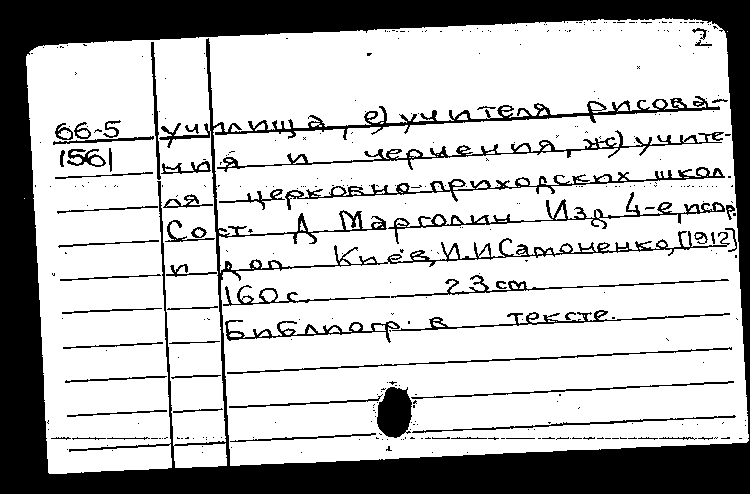 2
66-5 училища, е) учителя рисова-
1561 ния и черчения, ж) учите-
ля церковно-приходских школ.
Сост. Д Марголин Изд. 4-е, испр.
и доп Киев, И.И Самоненко, [1912]
160 с. 23 см.
Библиогр. в тексте.